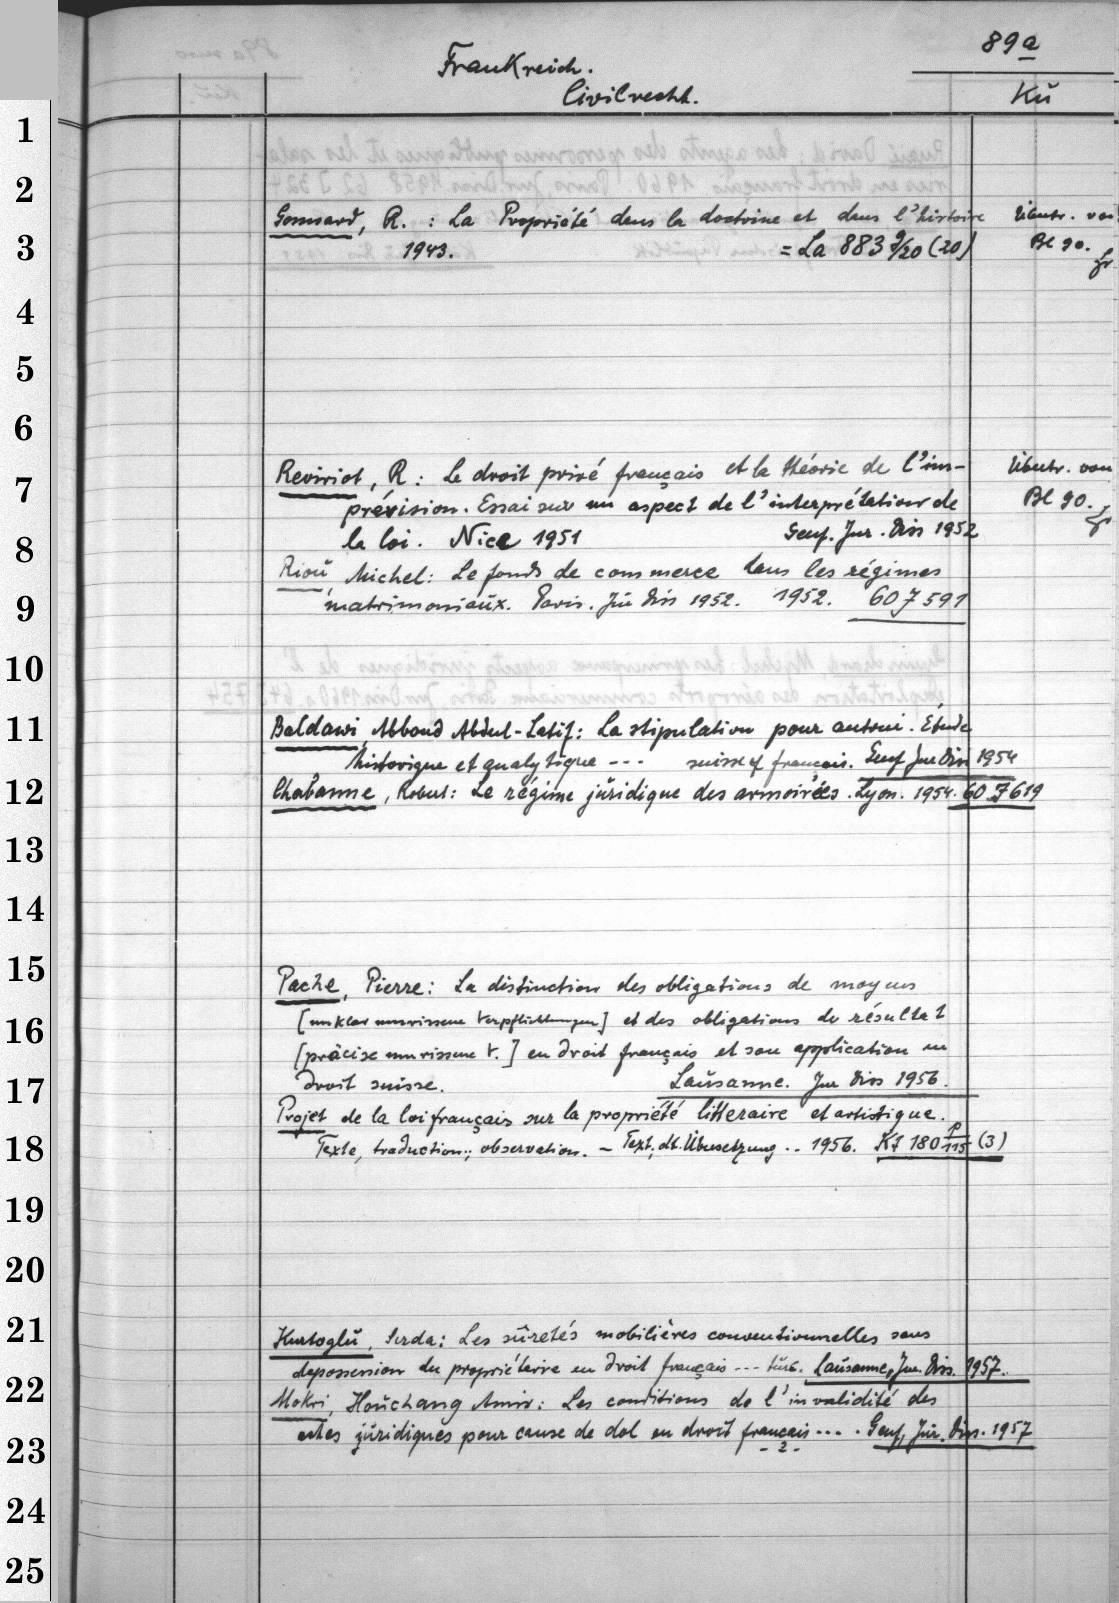 89a
Frankreich.
Civilrecht.
Kü
1
2
Gonnard, R. : La Propriété dans la doctrine et dans l'histoire Übertr. von
3
1943. = La 883 9/20 (20) Bl 90.
4
5
6
Reviriot, R : Le droit privé français et la théorie de l'im- Übertr. von
7
prévision. Essai sur un aspect de l'interprétation de Bl 90.
8
la loi. Nice 1951 Genf. Jur. Diss 1952
Rioù, Michel: Le fonds de commerce dans les régimes
9
matrimoniaux. Paris. Jur Diss 1952. 1952. 60 J 591
10
11
Baldawi Abboud Abdul-Latif: La stipulation pour autrui. Étude
historique et analytique --- suisse & français. Genf Jur Diss 1954
12
Chabanne, Robert: Le régime juridique des armoiries. Lyon. 1954. 60 J 619
13
14
15
Pache, Pierre: La distinction des obligations de moyens
16
[unklar umrissene Verpflichtungen] et des obligations de résultat
[präcise umrissene V.] en droit français et son application en
17
droit suisse. Lausanne. Jur Diss 1956.
Projet de la loi français sur la propriété litteraire et artistique.
18
Texte, traduction; observation. - Text, dt. Übersetzung .. 1956. Kf 180 P/115 (3)
19
20
21
Kurtoglu, Serda: Les sûretés mobilières conventionnelles sans
depossession du propriétaire en droit français --- türk. Lausanne, Jur. Diss. 1957.
22
Mokri, Houchang Amir: Les conditions de l'invalidité des
23
actes juridiques pour cause de dol en droit français --- . Genf, Jur. Diss. 1957
- 2 -
24
25